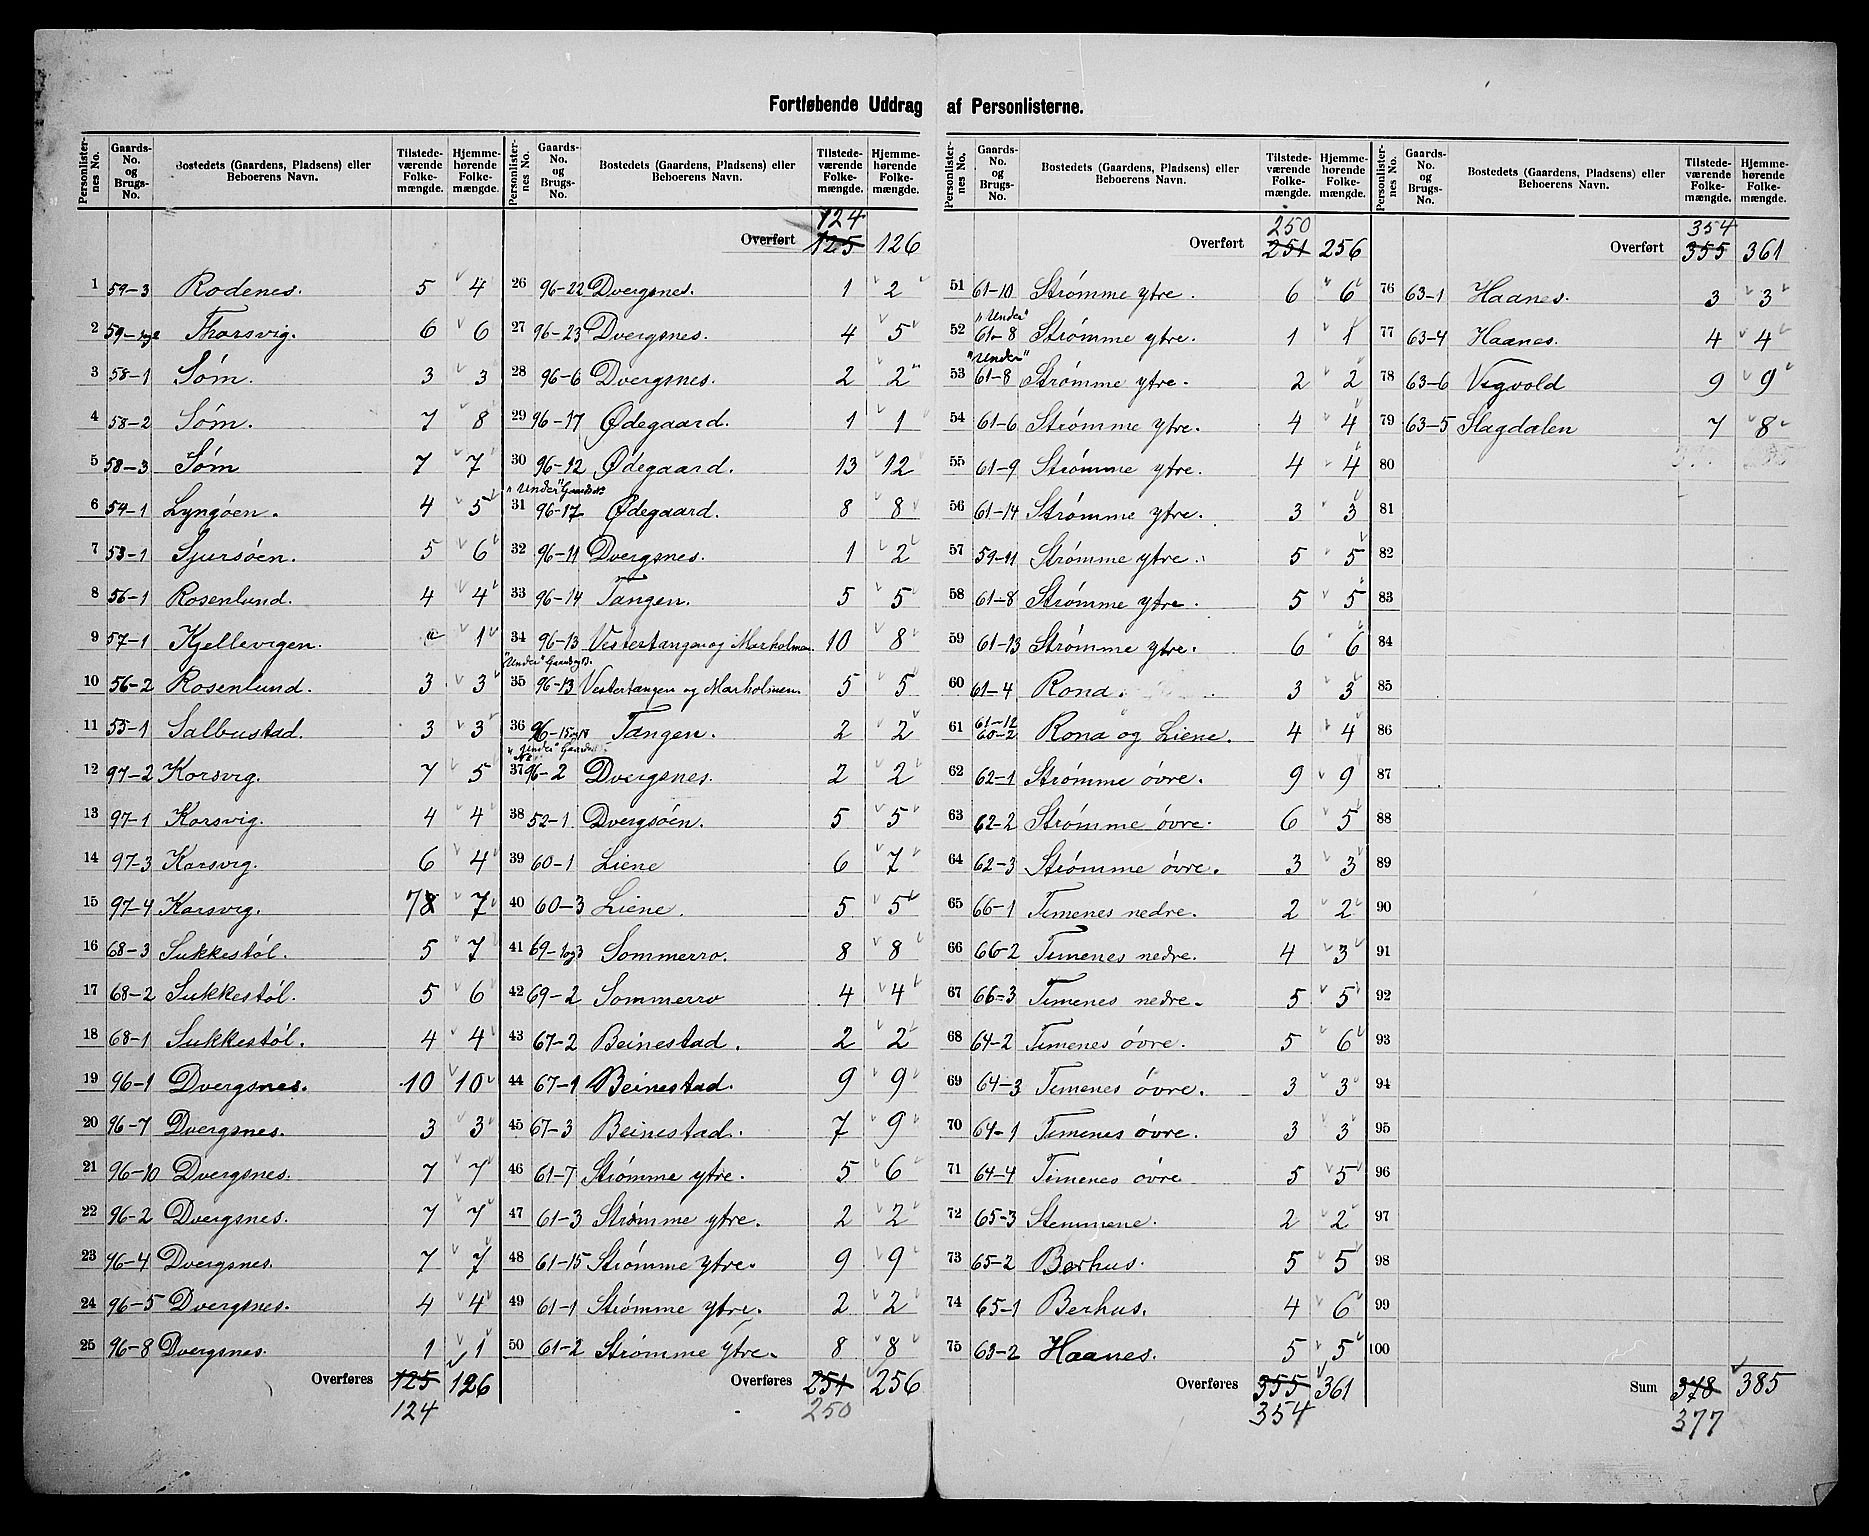 Fortløbende Uddrag af Personlisterne.
Personlister-nes No. Gaards-No. og Brugs-No. Bostedets (Gaardens, Pladsens) eller Beboerens Navn. Tilstede-værende Folke-mængde. Hjemme-hørende Folke-mængde.
1 59-3 Rodenes. 5 4
2 Thorsvig. 6 6
3 58-1 Søm. 3 3
4 58-2 Søm. 7 8
5 58-3 Søm 7 7
6 54-1 Lyngøen. 4 5
7 53-1 Sjursøen. 5 6
8 56-1 Rosenlund. 4 4
9 57-1 Kjellevigen. 1
10 56-2 Rosenlund. 3 3
11 55-1 Salbustad. 3 3
12 97-2 Korsvig. 7 5
13 97-1 Korsvig. 4 4
14 97-3 Korsvig. 6 4
15 97-4 Korsvig. 7 8 7
16 68-3 Sukkestøl. 5 7
17 68-2 Sukkestøl. 5 6
18 68-1 Sukkestøl. 4 4
19 96-1 Dvergsnes. 10 10
20 96-7 Dvergsnes. 3 3
21 96-10 Dvergsnes. 7 7
22 96-2 Dvergsnes. 7 7
23 96-4 Dvergsnes. 7 7
24 96-5 Dvergsnes. 4 4
25 96-8 Dvergsnes. 1 1
Overføres 125 126
124
Personlister-nes No. Gaards-No. og Brugs-No. Bostedets (Gaardens, Pladsens) eller Beboerens Navn. Tilstede-værende Folke-mængde. Hjemme-hørende Folke-mængde.
124
Overført 125 126
26 96-22 Dvergsnes. 1 2
27 96-23 Dvergsnes. 4 5
28 96-6 Dvergsnes. 2 2
29 96-17 Ødegaard. 1 1
30 96-12 Ødegaard. 13 12
"Under"
31 96-17 Ødegaard. 8 8
32 96-11 Dvergsnes. 1 2
33 96-14 Tangen. 5 5
34 96-13 Vestertangen og Marholmen. 10 8
"Under"
35 96-13 Vestertangen og Marholmen. 5 5
36 Tangen. 2 2
"Under"
37 96-2 Dvergsnes. 2 2
38 52-1 Dvergsøen. 5 5
39 60-1 Liene 6 7
40 60-3 Liene. 5 5
41 69-1og3 Sommerro. 8 8
42 69-2 Sommerro 4 4
43 67-2 Beinestad. 2 2
44 67-1 Beinestad. 9 9
45 67-3 Beinestad. 7 9
46 61-7 Strømme ytre. 5 6
47 61-3 Strømme ytre. 2 2
48 61-15 Strømme ytre. 9 9
49 61-1 Strømme ytre. 2 2
50 61-2 Strømme ytre. 8 8
Overføres 251 256
250
Personlister-nes No. Gaards-No. og Brugs-No. Bostedets (Gaardens, Pladsens) eller Beboerens Navn. Tilstede-værende Folke-mængde. Hjemme-hørende Folke-mængde.
250
Overført 251 256
51 61-10 Strømme ytre. 6 6
"Under"
52 61-8 Strømme ytre. 1 1
"Under"
53 61-8 Strømme ytre. 2 2
54 61-6 Strømme ytre. 4 4
55 61-9 Strømme ytre. 4 4
56 61-14 Strømme ytre. 3 3
57 59-11 Strømme ytre. 5 5
58 61-8 Strømme ytre. 5 5
59 61-13 Strømme ytre. 6 6
60 61-4 Rona. 3 3
61 61-12 60-2 Rona og Liene. 4 4
62 62-1 Strømme øvre. 9 9
63 62-2 Strømme øvre. 6 5
64 62-3 Strømme øvre. 3 3
65 66-1 Timenes nedre. 2 2
66 66-2 Timenes nedre. 4 3
67 66-3 Timenes nedre. 5 5
68 64-2 Timenes øvre. 5 6
69 64-3 Timenes øvre. 3 3
70 64-1 Timenes øvre. 3 3
71 64-4 Timenes øvre 5 5
72 65-3 Stemmene. 2 2
73 65-2 Berhus. 5 5
74 65-1 Berhus. 4 6
75 63-2 Haanes. 5 5
Overføres 355 361
354
Personlister-nes No. Gaards-No. og Brugs-No. Bostedets (Gaardens, Pladsens) eller Beboerens Navn. Tilstede-værende Folke-mængde. Hjemme-hørende Folke-mængde.
354
Overført 355 361
76 63-1 Haanes. 3 3
77 63-4 Haanes. 4 4
78 63-6 Vigvold 9 9
79 63-5 Slagdalen 7 8
80
81
82
83
84
85
86
87
88
89
90
91
92
93
94
95
96
97
98
99
100
Sum 378 385
377